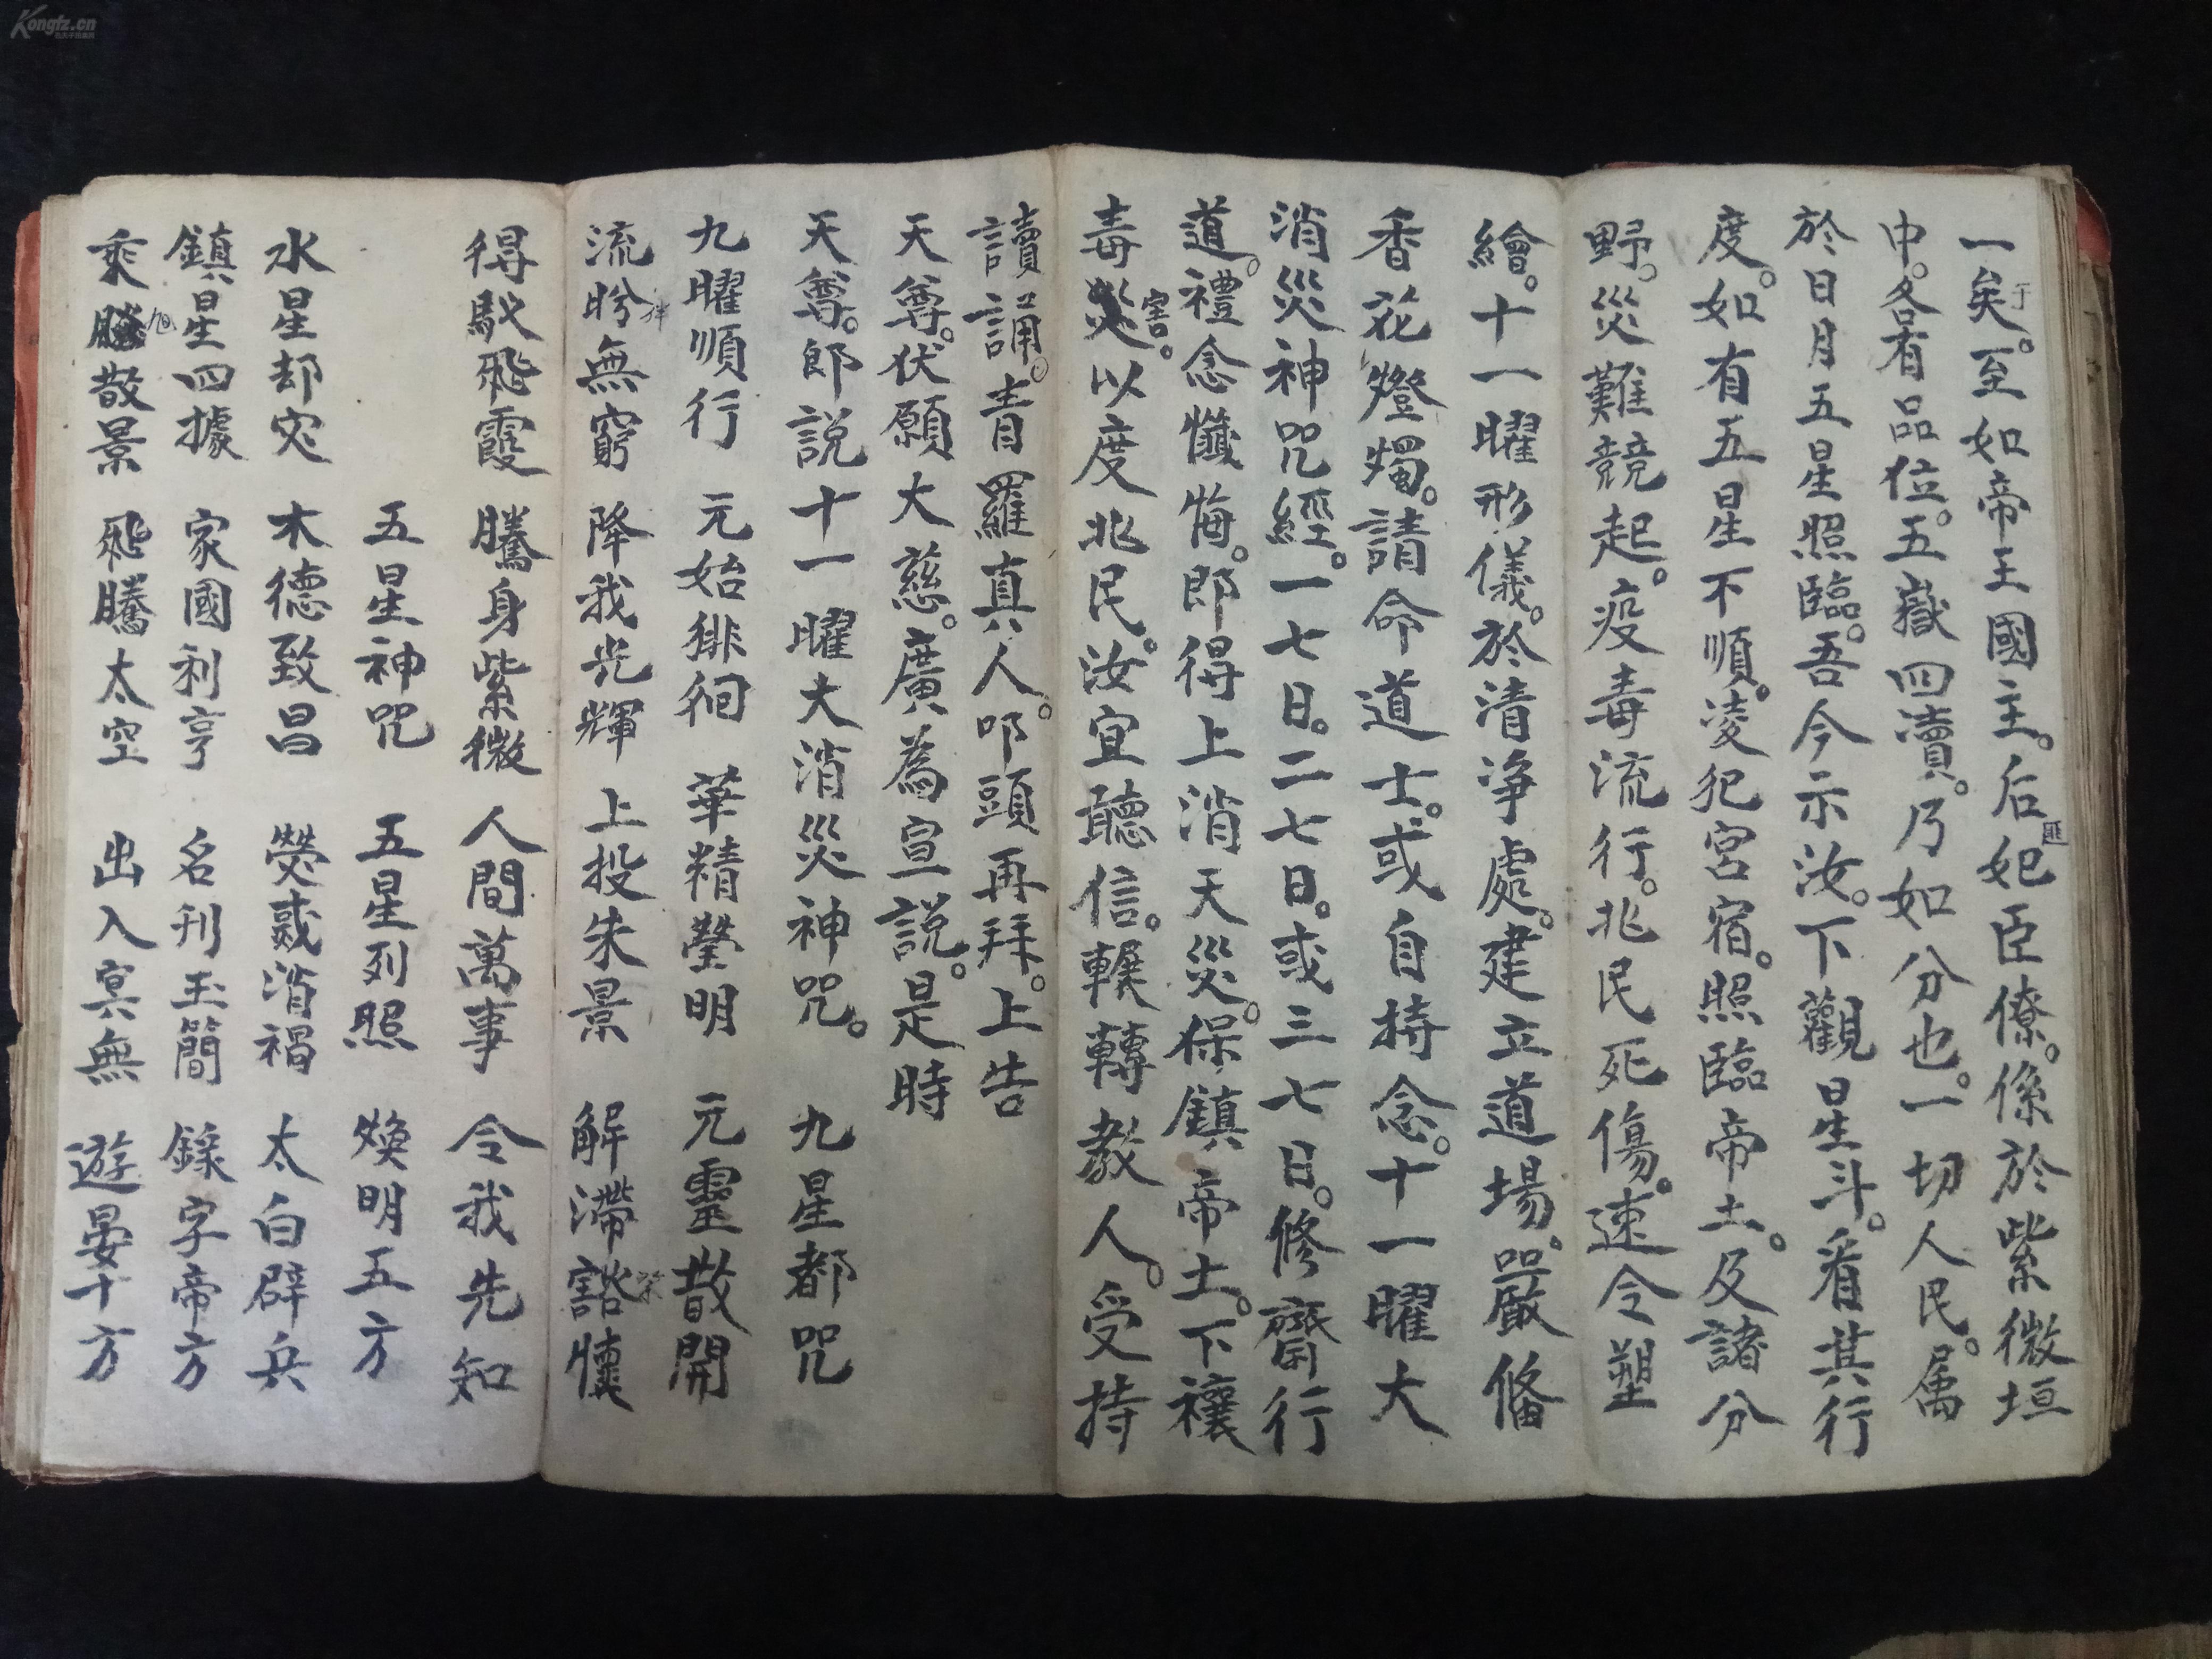 一矣。至如帝王國主。后妃臣僚。係於紫微垣
中。各有品位。五嶽四瀆。乃如分也。一切人民。属
於日月五星照臨。吾今示汝。下觀星斗。看其行
度。如有五星不順。凌犯宮宿。照臨帝土。及諸分
野。災難競起。疫毒流行。兆民死傷。速令塑
繪。十一曜形儀。於清净處。建立道場。嚴俻
香花燈燭。請命道士。或自持念。十一曜大
消災神咒經。一七日。二七日。或三七日。修齋行
道。禮念懺悔。即得上消天災。保鎮帝土。下禳
毒災害。以度兆民。汝宜聽信。轉教人。受持
讀誦。青羅真人。叩頭再拜。上告
天尊。伏願大慈。廣為宣説。是時
天尊。郎説十一曜大消災神咒。 九星都咒
九曜順行 元始徘徊 華精瑩明 元靈散開
流盼無窮 降我光輝 上投朱景 解滯豁懷
得馭飛霞 騰身紫微 人間萬事 令我先知
五星神咒 五星列照 煥明五方
水星却灾 木德致昌 熒惑消禍 太白辟兵
鎮星四據 家國利亨 名刊玉簡 錄字帝方
乘飚散景 飛騰太空 出入冥無 遊晏十方
于
匪
Kongfz.cn